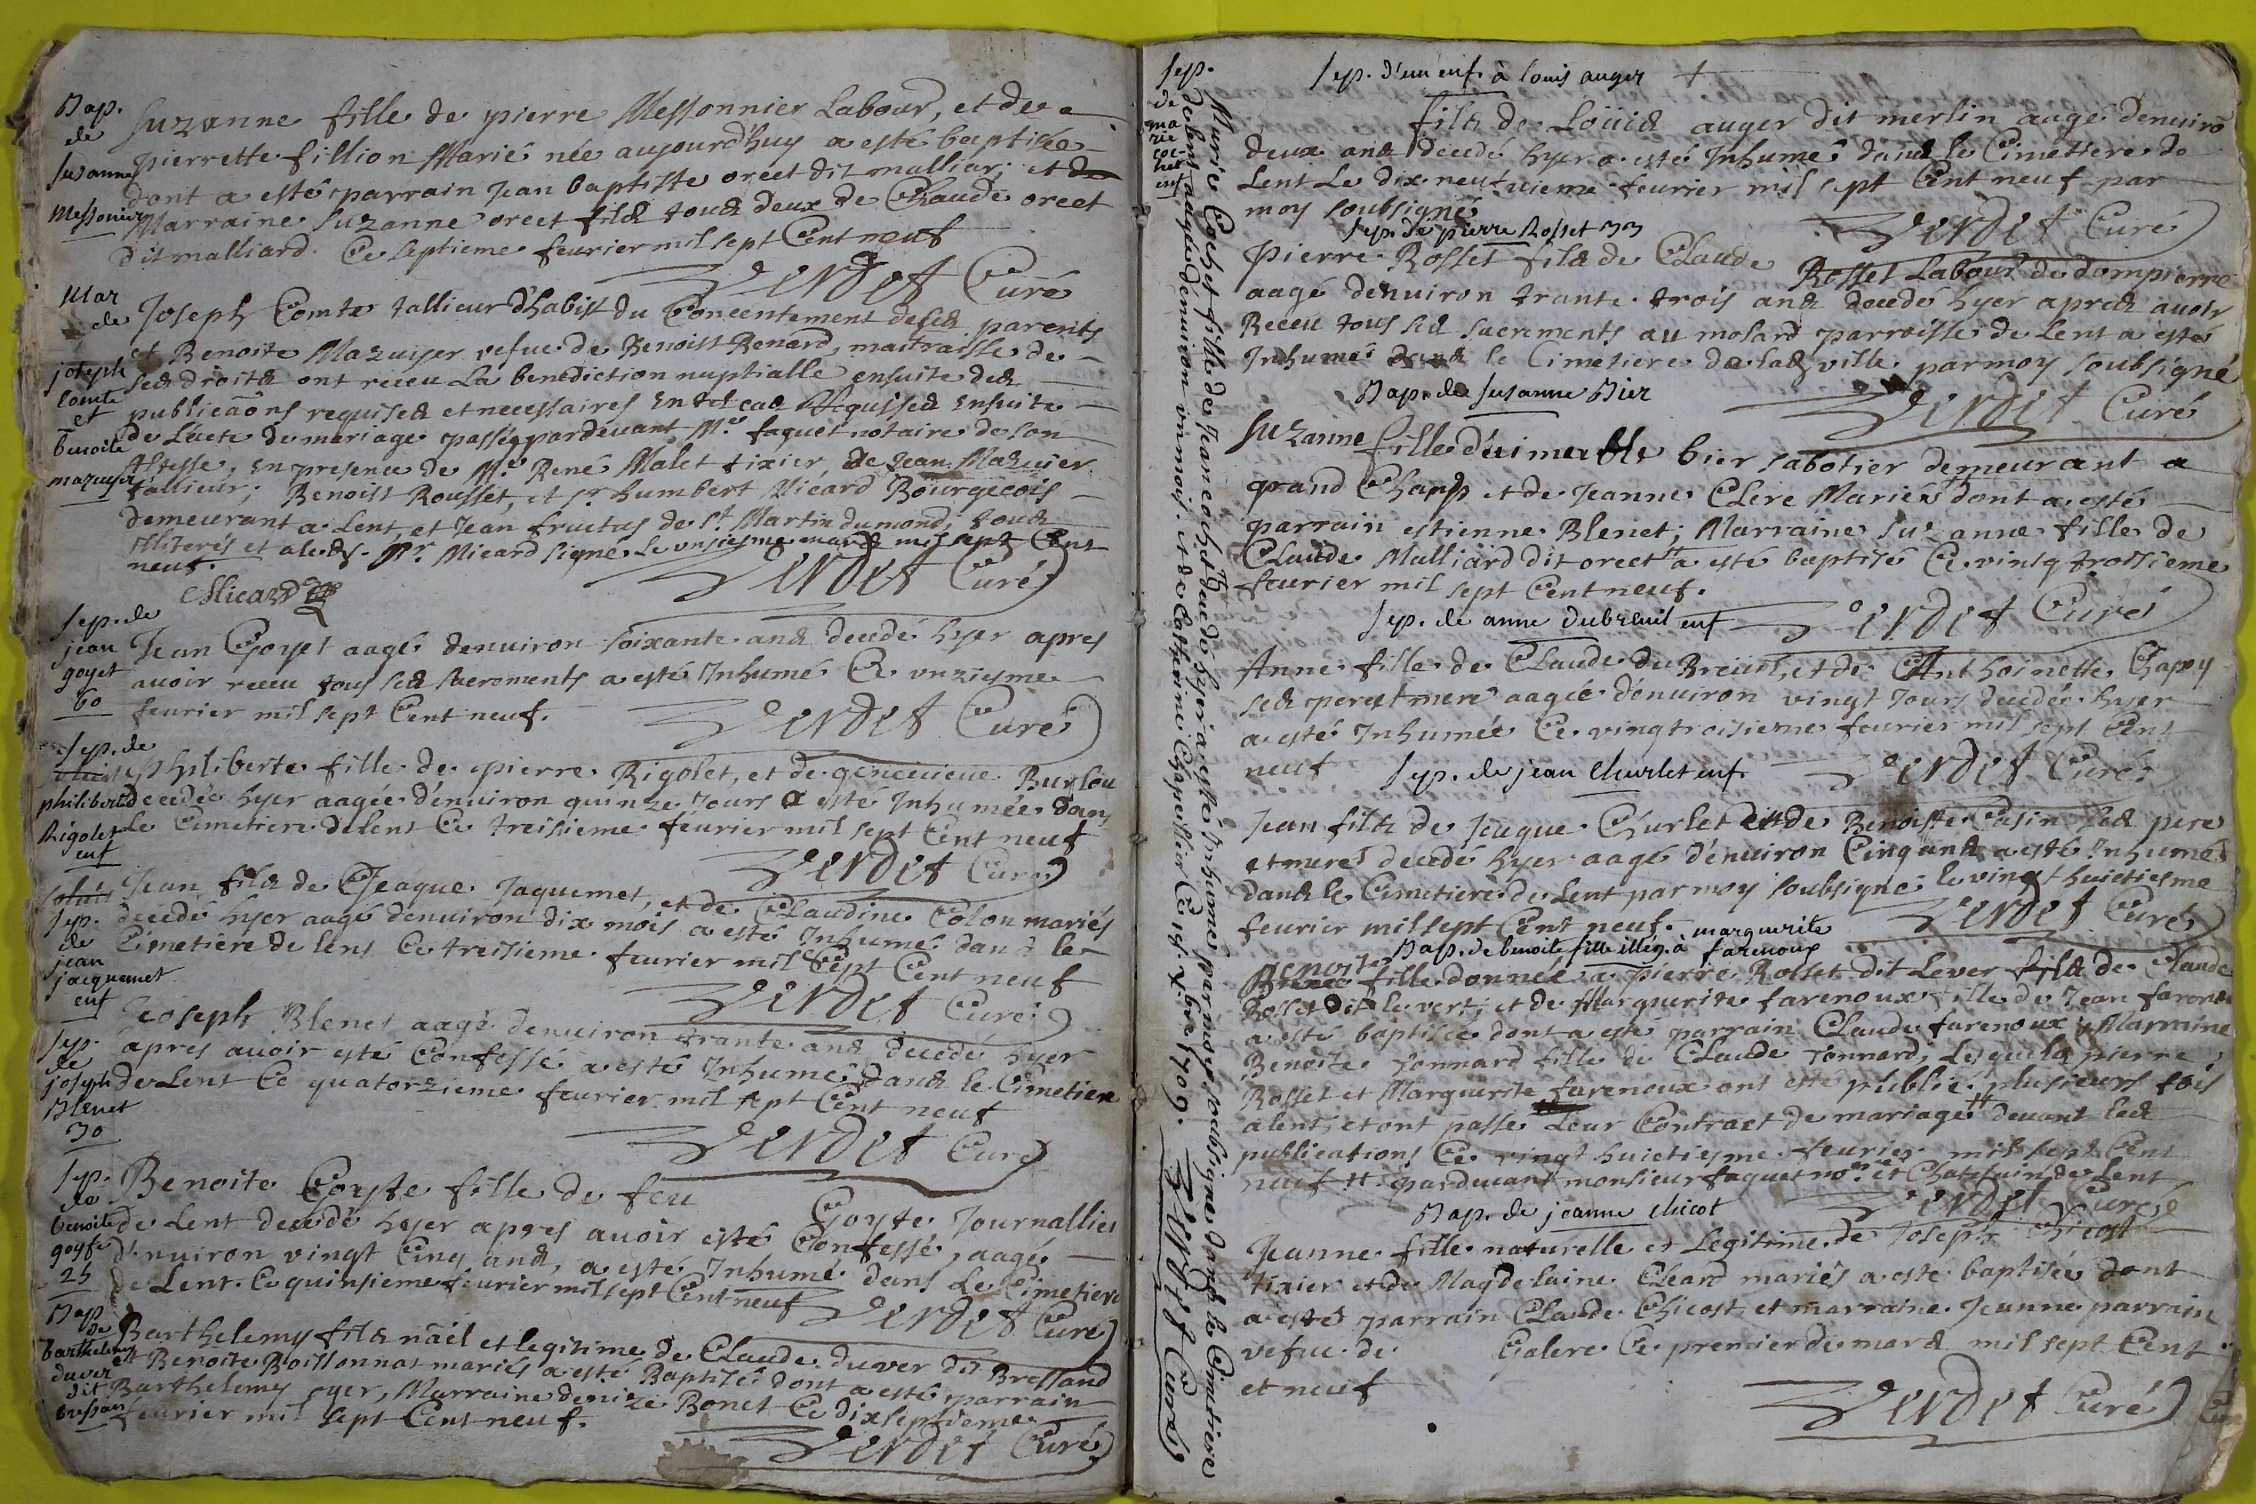 Bap.
de
Susanne
Messonier
Suzanne fille de pierre Messonnier Labour, et de
pierrette fillion Marié née aujourd'huy a esté baptisée
dont a esté parrain Jean baptiste oreet dit malliar; et
Marraine Suzanne oreet fild toud deux de Claude oreet
dit malliard. Ce septieme feurier mil sept Cent neuf
Verdet Curé
Mar
de
joseph
comte
et
benoite
mazuyer
Joseph Comte tallieur d'habit du Concentement desed parents
et Benoite Mazuyer vefue de Benoist Renard, maitraisse de
sed droitd ont receu La benediction nuptialle ensuite ded
publicaõns requised et necessaires en tel cas Requised ensuite
de L'acte de mariage passé pardeuant Me. faguet notaire de son
Altesse, en presence de Me René Malet tixier, de Jean Mazuier
tallieur; Benoist Rousset, et Sr humbert Micard Bourgeois
demeurant a Lent, et Jean fructus de St. Martin du mond, toud
Illiterés et aled. Sr. Micard signé Le unsiesme mard mil sept Cent
neuf.
Verdet Curé
Micard
Sep. de
jean
goyet
60
Jean Goyet aagé denuiron soixante and decedé hyer apres
auoir receu tous sed sacrements a esté Inhumé Ce unziesme
feurier mil sept Cent neuf.
Verdet Curé
Sep. de
philiberte
Rigolet
enf
philiberte fille de pierre Rigolet, et de geneuieue Burlou
decedée hyer aagée d'enuiron quinze Jours a esté Inhumée dans
Le Cimetiere de lent Ce treisieme feurier mil sept Cent neuf
Verdet Curé
Sep.
de
jean
jacquemet
enf
Jean fild de Jeaque Jaquemet, et de Claudine Colon mariés
decedé hyer aagé denuiron dix mois a esté Inhumé dand le
Cimetiere de lent Ce treisieme feurier mil sept Cent neuf
Verdet Curé
Sep.
de
joseph
Blenet
30
Joseph Blenet aagé denuiron trante and decedé hyer
apres auoir esté Confessé a esté Inhumé dand le Cimetiere
de Lent Ce quatorzieme feurier mil sept Cent neuf
Verdet Curé
Sep.
de
benoite
goyfe
25
Benoite Goyfe fille de feu Goyfe Journallier
de Lent decedé hyer apres auoir esté Confessé, aagé
d'enuiron vingt Cinq and, a esté Inhumé dans Le Cimetiere
de Lent. Ce quinsieme feurier mil sept Cent neuf
Verdet Curé
Bap
de
barthelemy
duver
dit
bressan
Barthelemy fild nãel et legitime de Claude duver dit Bressand
et Benoite Boissonnat mariés a esté Baptisé dont a esté parrain
Barthelemy oyer, Marraine denize Bonet Ce dixseptieme
feurier mil sept Cent neuf.
Verdet Curé
Sep.
de
ma
rie
coc-
het
enf
Marie Cochet fille de Jean cochet decedé hyer a esté Inhumé par moy soubsigné dand le Cimetiere
de lent aagée denuiron un mois, et de Catherine Chapellier Ce 15. X. bre 1709. Verdet Curé
Sep. d'un enf. à louis auger
fild de Loüid auger dit merlin aagé denuirõ
deux and decedé hyer a esté Inhumé dand le Cimetiere de
Lent Le dix neufuieme feurier mil sept Cent neuf par
moy soubsigné
Verdet Curé
Sep. de pierre Rosset 33
Pierre Rosset fild de Claude Rosset Labour de dompierre
aagé denuiron trante trois and decedé hyer apred auoir
Receu tous sed sacrements au molard parroisse de Lent a esté
Inhumé dand le Cimetiere de lad ville par moy soubsigné
Verdet Curé
Bap. de Susanne Bier
Suzanne fille d'eimeable bier sabotier demeurant a
grand Champ et de Jeanne Clere Mariés dont a esté
parrain estienne Blenet; Marraine Suzanne fille de
Claude Malliard dit oreet a esté baptisé Ce vintg troisieme
feurier mil sept Cent neuf.
Verdet Curé
Sep. de anne dubreuil enf
Anne fille de Claude du Breuil, et de Anthoinette Chapuy
sed pere et mere aagée d'enuiron vingt Jours decedée hyer
a esté Inhumée Ce vingtroisieme feurier mil sept Cent
neuf
Verdet Curé
Sep. de jean Churlet enf.
Jean fild de Jaque Churlet et de Benoiste Casin sed pere
et mere decedé hyer aagé d'enuiron Cinq and a esté Inhumé
dand le Cimetiere de Lent par moy soubsigné le vingt huictiesme
feurier mil sept Cent neuf.
Verdet Curé
Bap. de benoite fille illeg. à marguerite farenoux
Benoite fille donnée a pierre Rosset dit Lever fild de Claude
Rosset dit le vert, et de Marguerite farenoux fille de Jean farenoux
a esté baptisée dont a esté parrain Claude farenoux, Marraine
Benoite Jonnard fille de Claude Jonnard, Lesqueld pierre
Rosset et Marguerite farenoux ont esté publié plusieurs fois
a lent, et ont passé Leur Contract de mariage # deuant led
publications Ce vingt huictiesme feurier mil sept Cent
neuf # parduant monsieur faguet nore. et Chatelain de Lent
Verdet Curé
Bap. de jeanne chicot
Jeanne fille naturelle et Legitime de Joseph Chicost
tixier et de Magdelaine Cleard mariés a esté baptisée dont
a esté parrain Claude Chicost, et marraine Jeanne parrain
vefue de Galere Ce premier de mard mil sept Cent
et neuf
Verdet Curé